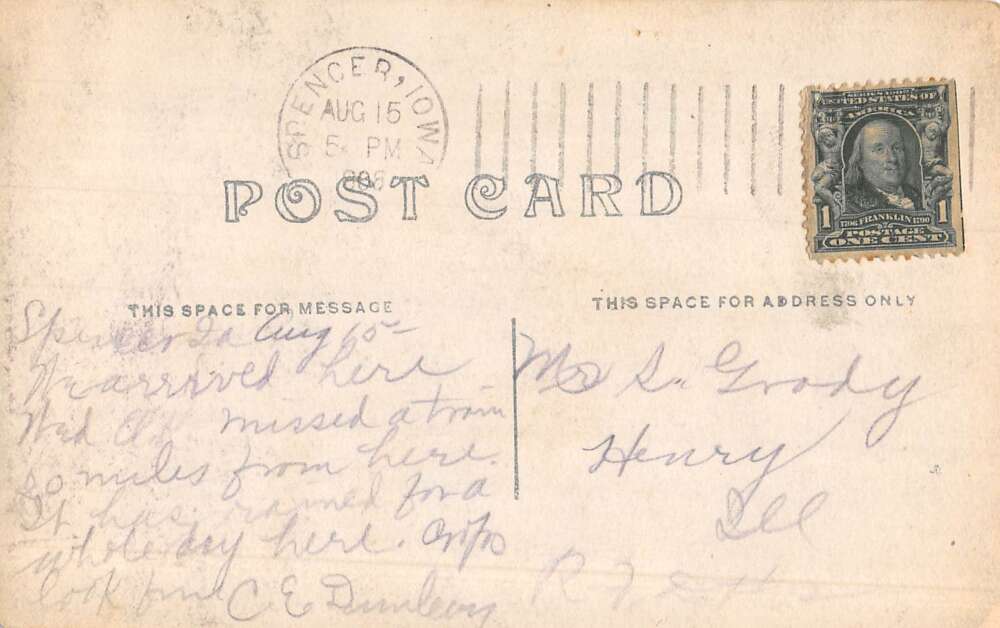 SPENCER, IOWA
AUG 15
5 PM
SERIES 1902
UNITED STATES OF
AMERICA
1 1706 FRANKLIN 1790 1
POSTAGE
ONE CENT
POST CARD
THIS SPACE FOR MESSAGE
THIS SPACE FOR ADDRESS ONLY
Spencer Ia Aug 15
arrrived here
missed a train
miles from here.
It has rained for a
whole day here. Crops
look fine C E Dunleavy
S. Grady
Henry
Ill
R F D